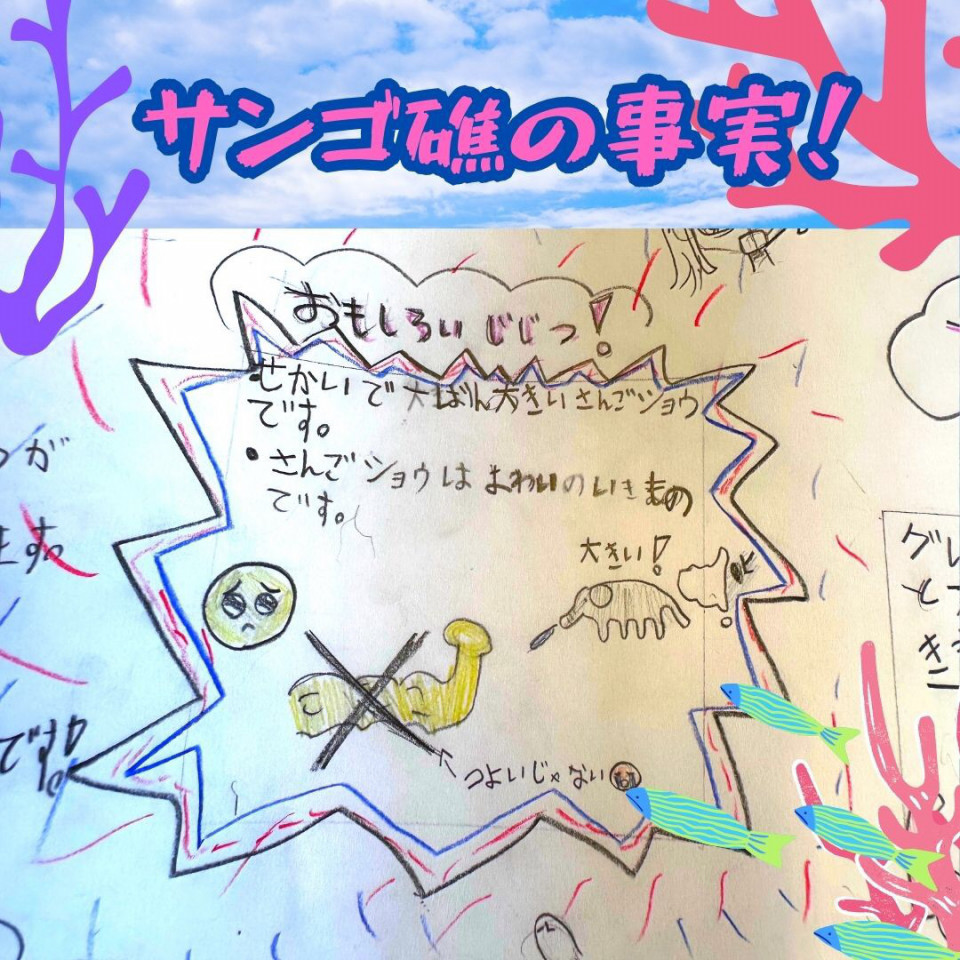 サンゴ礁の事実!
おもしろい じじつ!
・せかいで大ばん大きいさんごショウ
です。
・さんごショウは よわいのいきもの
です。
大きい!
つよいじゃない
が
ます。
です。
グレ
と
き